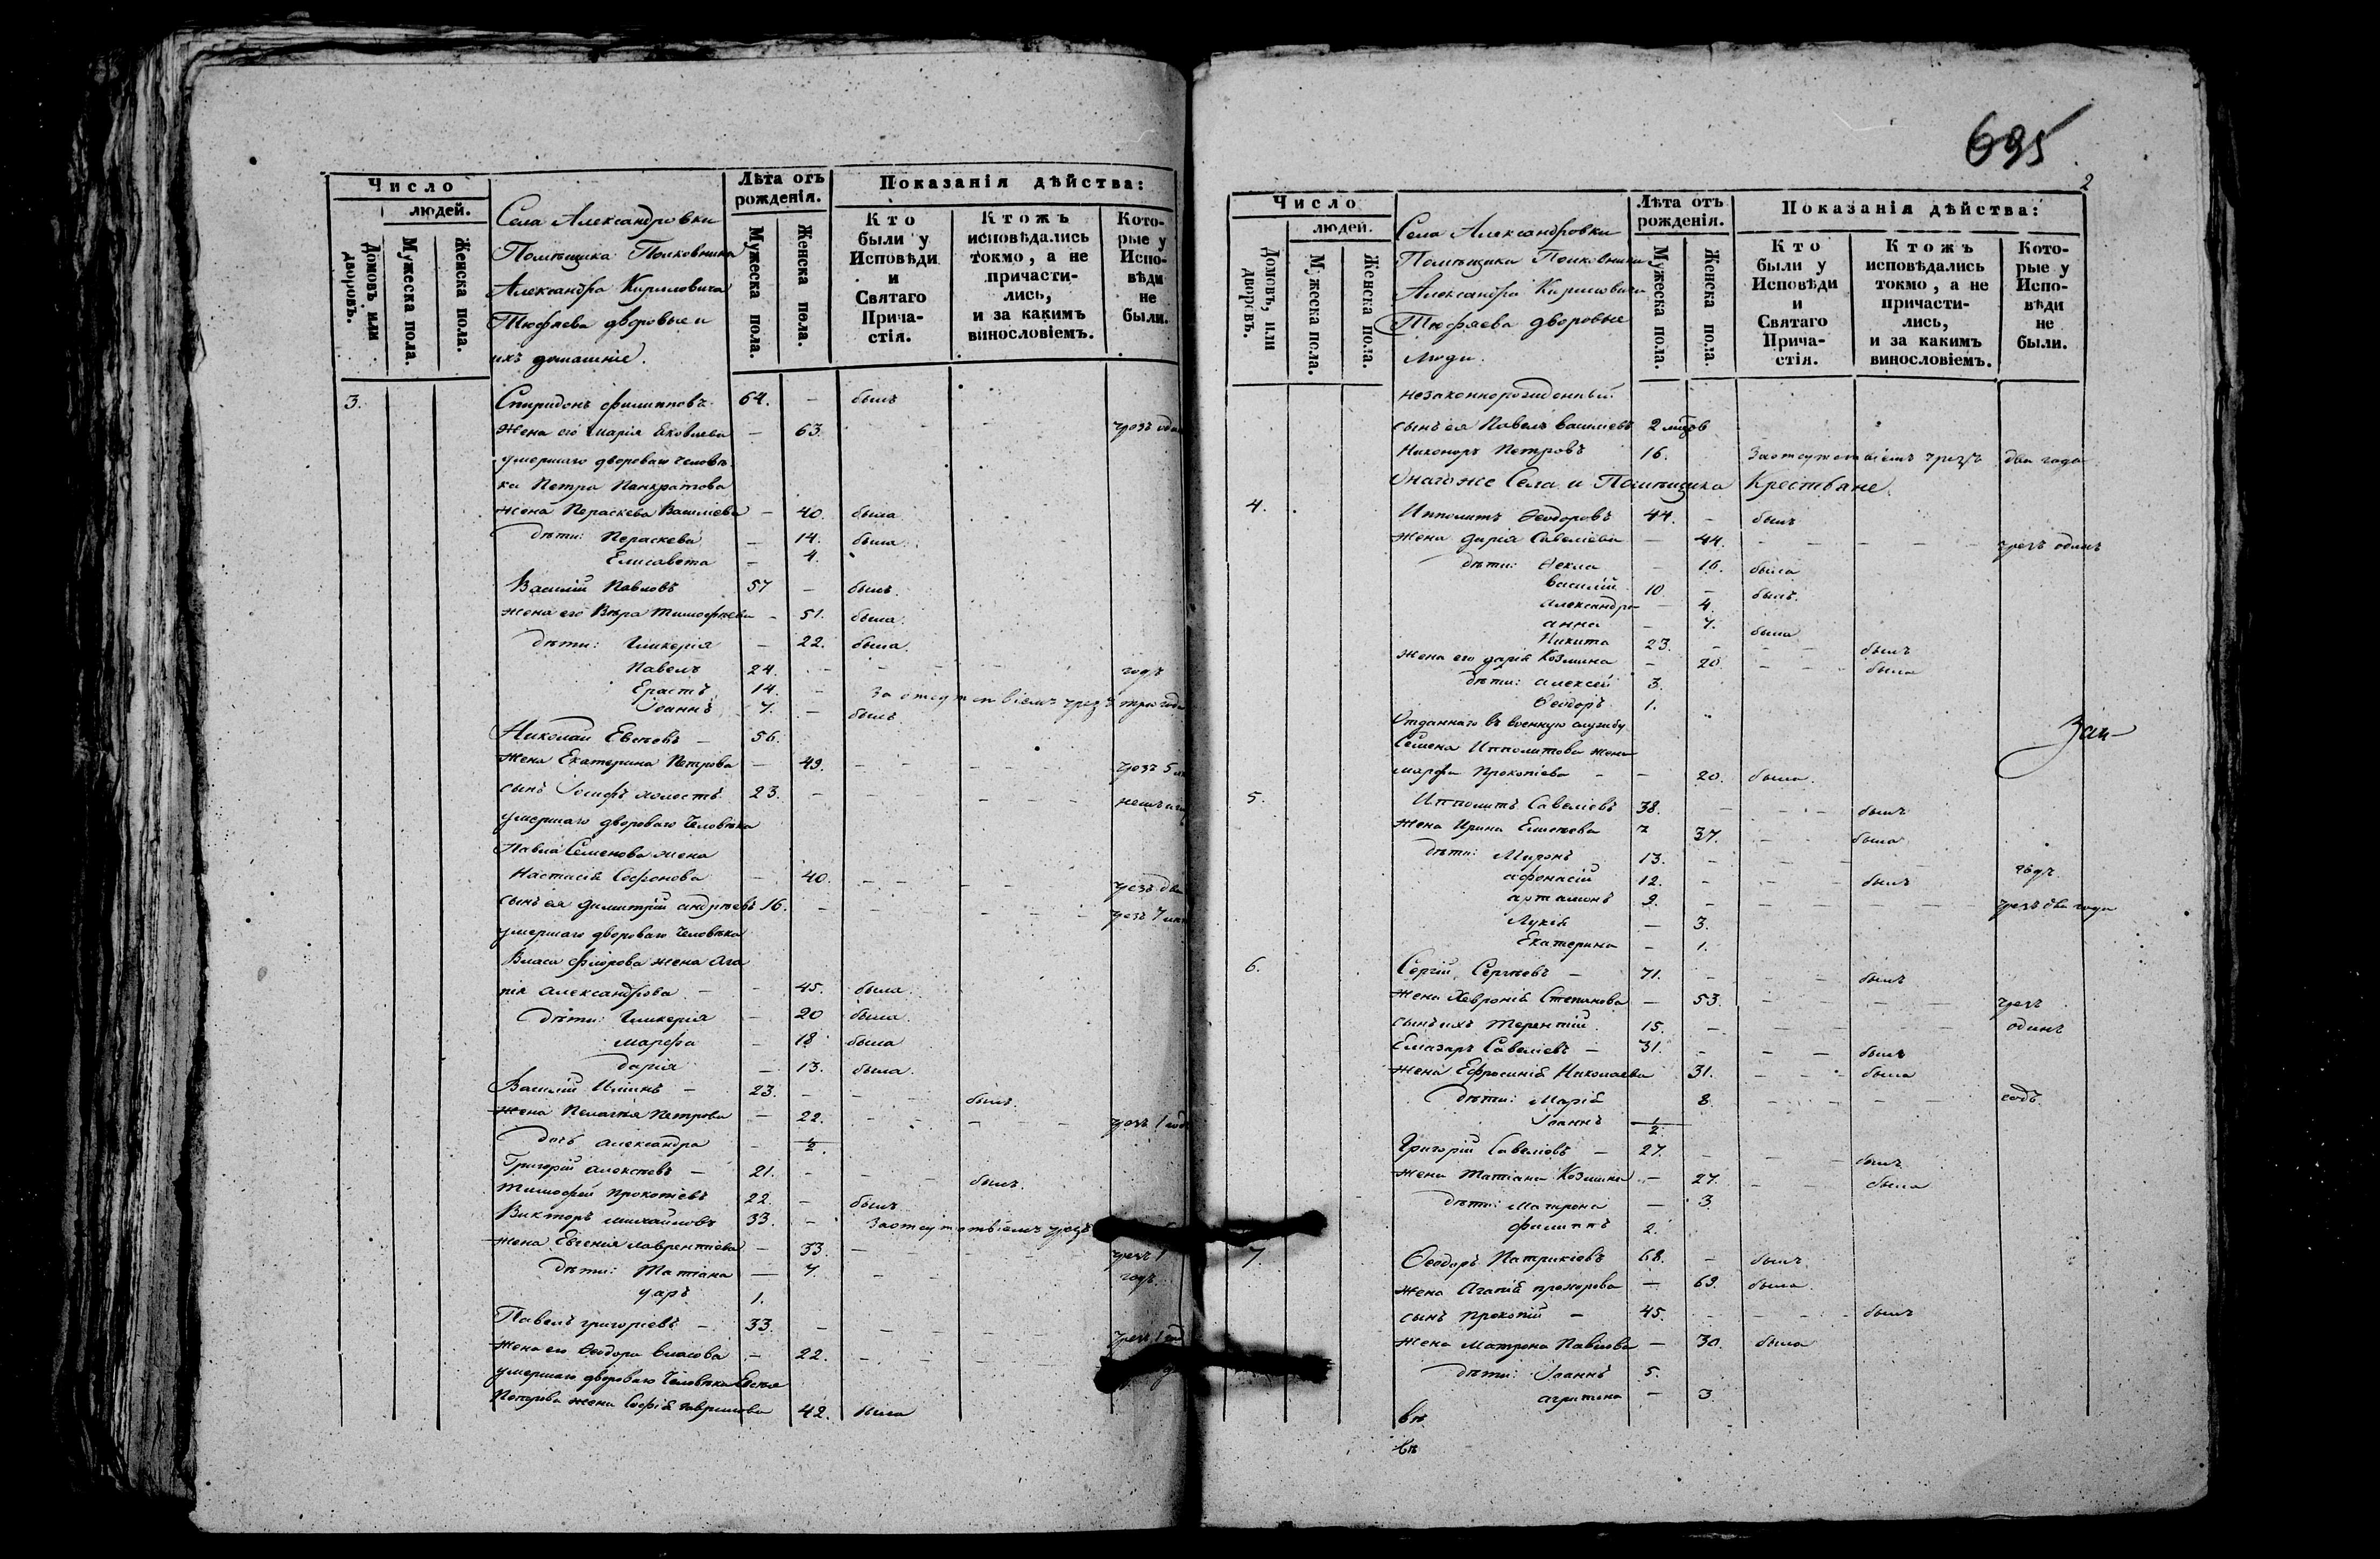 Число
людей.
Домовъ или дворовъ.
Мужеска пола.
Женска пола.
Села Александровки
Помѣщика Полковника
Александра Кириловича
Тюфяева дворовые и
ихъ домашніе.
Лѣта отъ рожденія.
Мужеска пола.
Женска пола.
Показанія дѣйства:
Кто были у Исповѣди и Святаго Прича-стія.
Ктожъ исповѣдались токмо, а не причасти-лись, и за какимъ винословіемъ.
Кото-рые у Испо-вѣди не были.
3. Спиридонъ Филипповъ 64. – былъ
Жена его Марія Яковлева – 63. чрезъ
умершаго двороваго человѣ
ка Петра Панкратова
жена Параскева Василіева – 40. была
дѣти: Параскева – 14. была.
Елисавета – 4.
Василій Павловъ 57 – былъ.
жена его Вѣра Тимофѣева – 51. была.
дѣти: Гликерія – 22. была.
Павелъ 24. – годъ
Ерастъ 14. – За отсутствіемъ чрезъ три года
Іоаннъ 7. – былъ.
Николай – 56.
жена Екатерина Петрова – 49. – чрезъ 5
сынъ Іосифъ холостъ 23. –
умершаго двороваго человѣка
Павла Семенова жена
Настасія – 40. – чрезъ два
сынъ ея Димитрій Андреевъ 16. – чрезъ 7
умершаго двороваго человѣка
Власа жена Ага
пія Александрова – – 45. была.
дѣти: Гликерія – 20 была.
Марфа – 18 была
Дарія – 13. была.
Василій Ильинъ – 23. – – былъ.
жена Пелагія Петрова – 22. – чрезъ 1 годъ
дочь Александра – ½.
Григорій Алексѣевъ – 21. – – былъ.
Тимофей Прокопіевъ 22. – былъ
Викторъ Михайловъ 33. – За отсутствіемъ чрезъ
жена Евгенія Лаврентіева – 33. – чрезъ 1
дѣти: Татіана – 7. – годъ.
Уаръ 1.
Павелъ Григорьевъ – 33. – чрезъ 1
жена его Ѳеодора Власова – 22. –
умершаго двороваго человѣка
Петрова жена Софія Гаврилова 42. была
695
2
Число
людей.
Домовъ, или дворовъ.
Мужеска пола.
Женска пола.
Села Александровки
Помѣщика Полковника
Александра Кириловича
Тюфяева дворовые
люди.
Лѣта отъ рожденія.
Мужеска пола.
Женска пола.
Показанія дѣйства:
Кто были у Исповѣди и Святаго Прича-стія.
Ктожъ исповѣдались токмо, а не причасти-лись, и за какимъ винословіемъ.
Кото-рые у Испо-вѣди не были.
незаконнорожденный
сынъ ея Павелъ Василіевъ 2
Никоноръ Петровъ 16. За отсутствіемъ чрезъ два года
Онагоже Села и Помѣщика Крестьяне.
4. Ипполитъ Ѳеодоровъ 44. – былъ
жена Дарія Савеліева – 44. – – – – чрезъ одинъ
дѣти: Ѳекла – 16. была
Василій 10 – былъ.
Александра – 4.
Анна – 7. была
Никита 23. – – – былъ
жена его Дарія Козмина – 20. – – – была
дѣти: Алексей 3.
Ѳеодоръ 1.
Отданнаго въ военную службу
Семена Ипполитова жена
Марфа Прокопіева – – 20. была.
5. Ипполитъ Савеліевъ 38. – – – былъ
жена Ирина 37. – была
дѣти: Миронъ 13. – – – годъ.
Афонасій 12. – – – былъ
Артамонъ 9. – – – – чрезъ два года
Лукія – 3.
Екатерина – 1.
6. Сергій Сергѣевъ – 71. – – былъ
жена Хевронія Степанова – 53. – – – чрезъ
сынъ ихъ Терентій 15. – – – одинъ
Елизаръ Савеліевъ – 31. – – – былъ
жена Ефросинія Николаева 31. – – – была
дѣти: Марія 8. – – – – годъ.
Іоаннъ ½.
Григорій Савеліевъ – 27. – – – былъ
жена Татіана Козмина – 27. – – была
дѣти: Матрона – 3.
Филиппъ 2.
7. Ѳеодоръ Патрикіевъ 68. – былъ.
жена Агапія Прохорова – 69. была.
сынъ Прокопій – 45. – – – – былъ
жена Матрона Павлова – 30. была
дѣти: Іоаннъ 5.
Агрипина – 3.